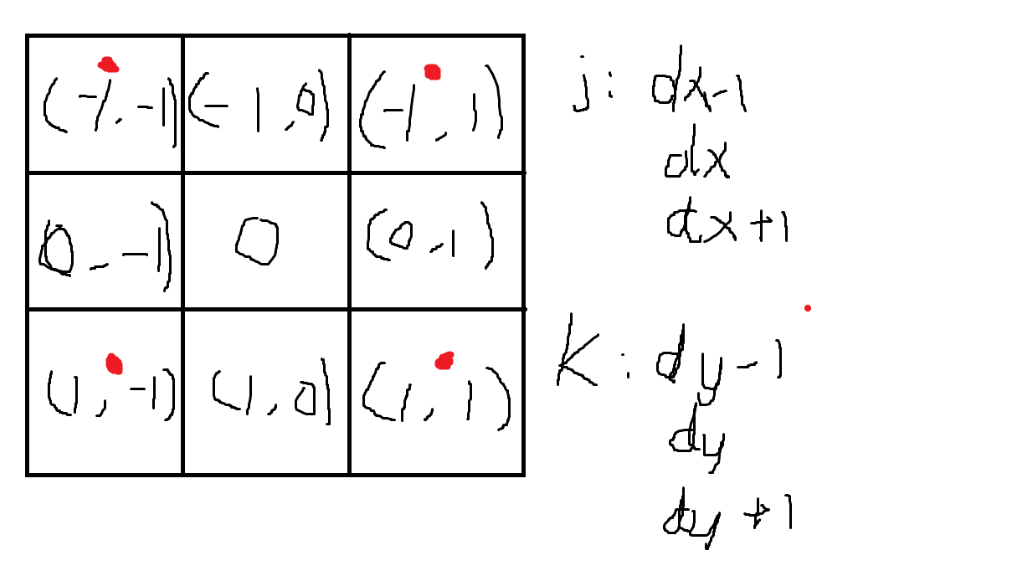 (-1,-1) (-1,0) (-1,1)
0,-1) 0 (0,1)
(1,-1) (1,0) (1,1)
j: dx-1
dx
dx+1
K: dy-1
dy
dy+1